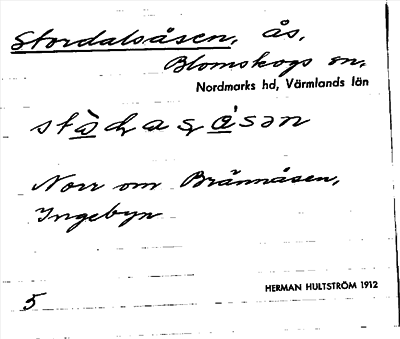 Stordalsåsen, ås,
Blomskogs sn,
Nordmarks hd, Värmlands län
Norr om Brännåsen,
Ingebyn
5
HERMAN HULTSTRÖM 1912